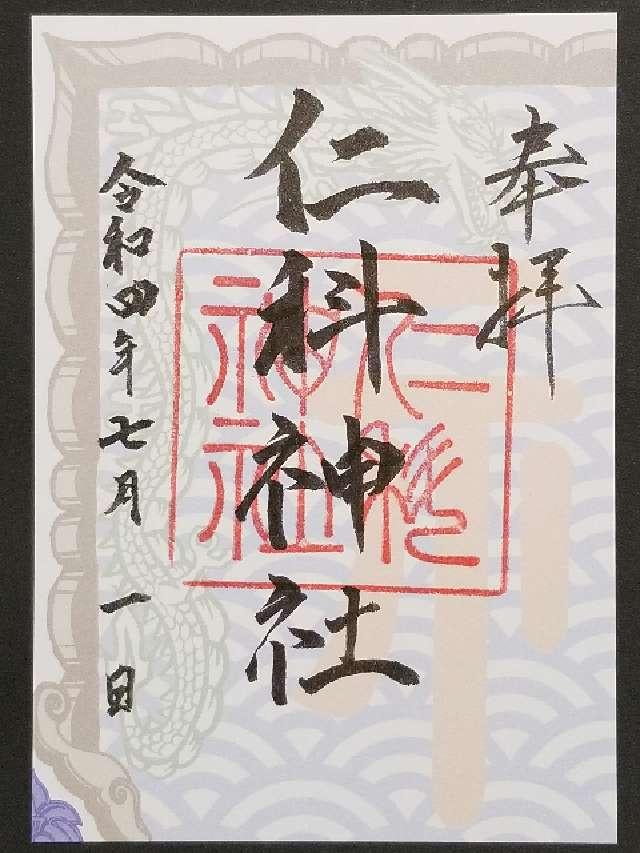 奉拝
仁科神社
仁科
神社
令和四年七月一日